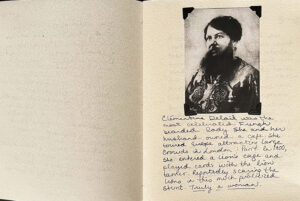 Clémentine Delait was the
most celebrated French
bearded lady. She and her
husband owned a cafe. She
toured Europe attracting large
crowds in London & Paris. In 1900,
She entered a lion's cage and
played cards with the lion
tamer. Reportedly scaring the
lions in this much publicized
stunt. Truly a woman.